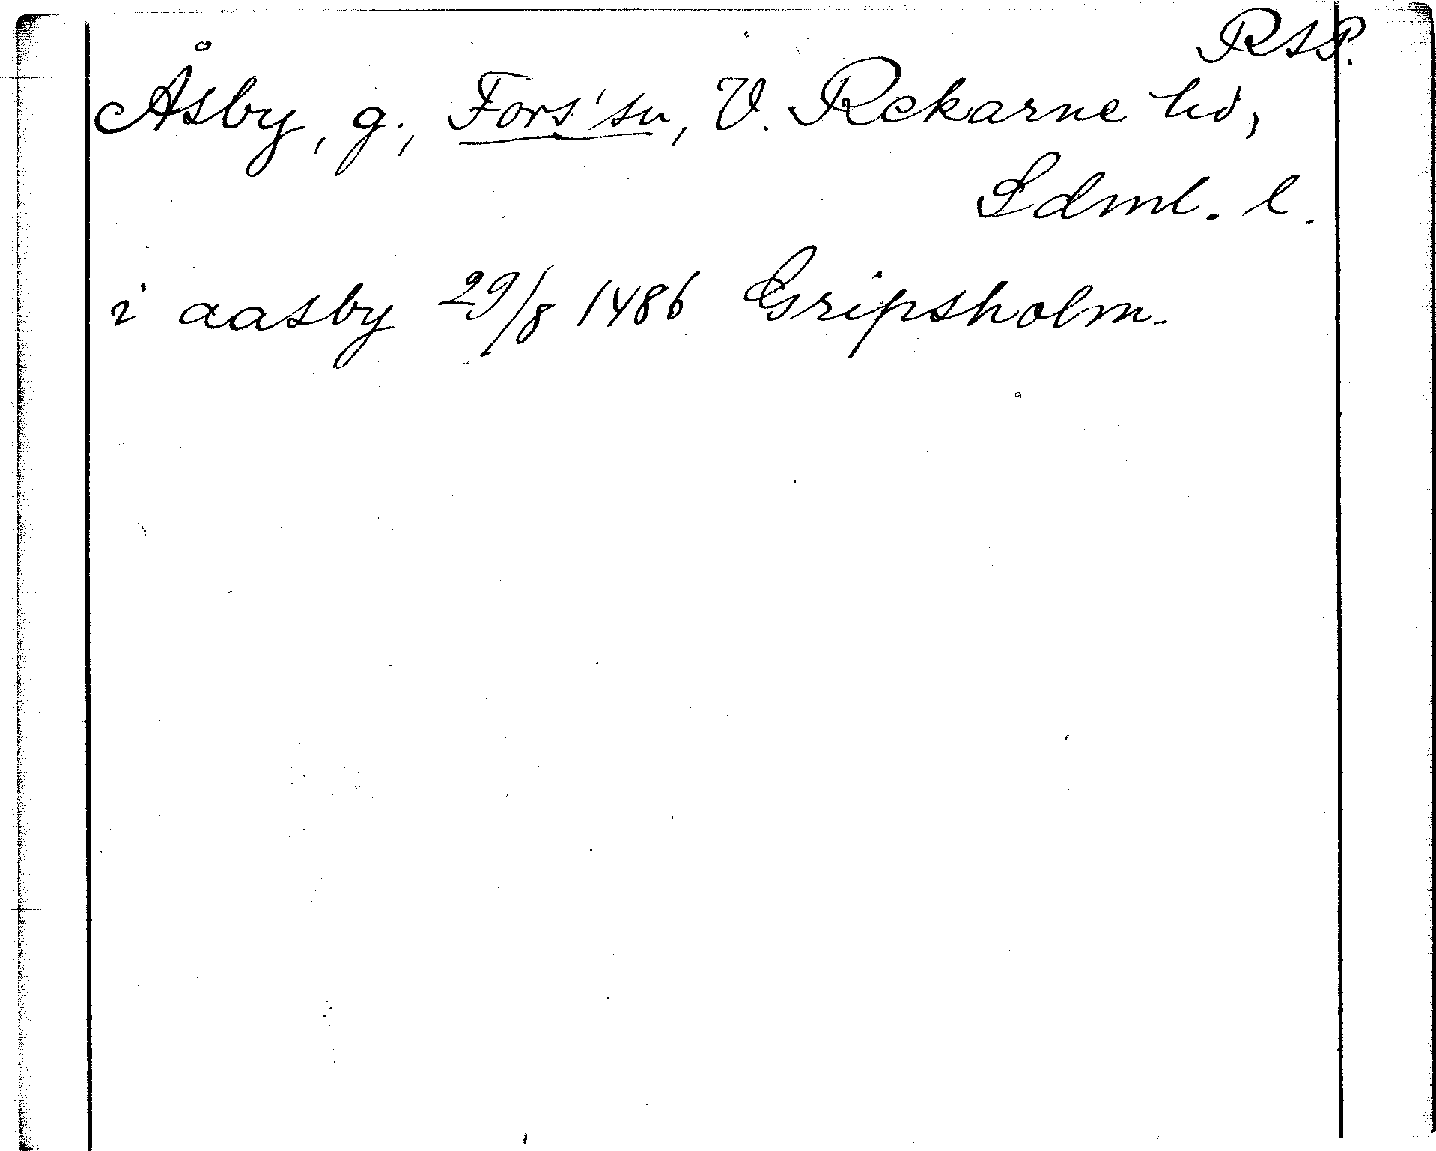 RAP.
Åsby, g., Fors' sn, V. Rekarne hd,
Sdml. l.
i aasby 29/8 1486 Gripsholm.